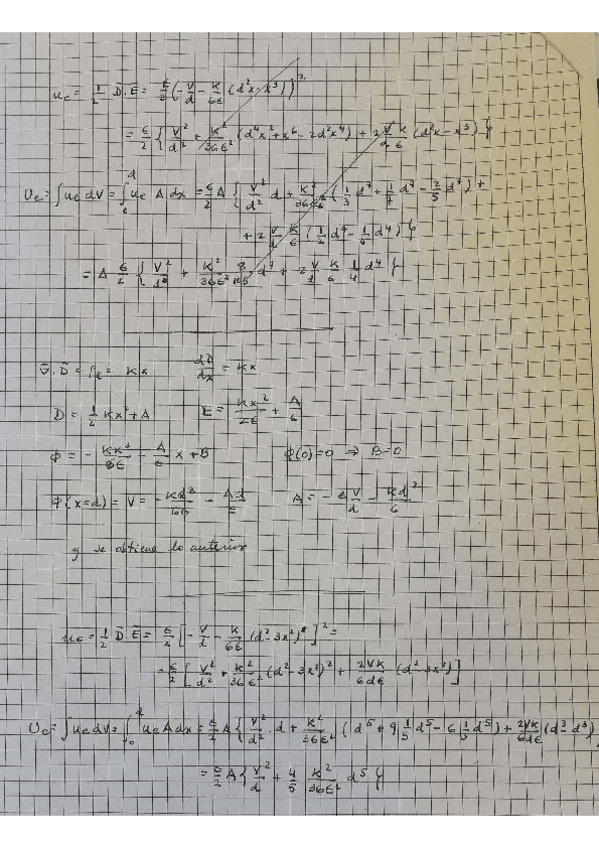 u_e = 1/2 D̄·Ē = ε/2 (-V/d - K/6ε (d²x - x³))²
= ε/2 { V²/d² + K²/36ε² (d⁴x² + x⁶ - 2d²x⁴) + 2 V/d K/ε (d²x - x³) }
U_e = ∫u_e dV = ∫₀ᵈ u_e A dx = ε/2 A { V²/d² d + K²/36ε² (1/3 d⁷ + 1/7 d⁷ - 2/5 d⁷) +
+ 2 V/d K/ε (1/2 d⁴ - 1/4 d⁴) }
= A ε/2 { V²/d + K²/36ε² 8/105 d⁷ + 2 V/d K/6 1/4 d⁴ }
∇̄·D̄ = ρ_l = Kx dD/dx = Kx
D = 1/2 Kx² + A E = Kx²/2ε + A/ε
Φ = - Kx³/6ε - A/ε x + B Φ(0)=0 ⇒ B=0
Φ(x=d) = V = - Kd³/6ε - Ad/ε A = - ε V/d - Kd²/6
y se obtiene lo anterior
u_e = 1/2 D̄·Ē = ε/2 [ - V/d - K/6ε (d² - 3x²) ]² =
= ε/2 [ V²/d² + K²/36ε² (d² - 3x²)² + 2VK/6dε (d² - 3x²) ]
U_e = ∫u_e dV = ∫₀ᵈ u_e A dx = ε/2 A { V²/d² · d + K²/36ε² ( d⁵ + 9 1/5 d⁵ - 6 1/3 d⁵ ) + 2VK/6dε (d³ - d³)
= ε/2 A { V²/d + 4/5 K²/36ε² d⁵ }